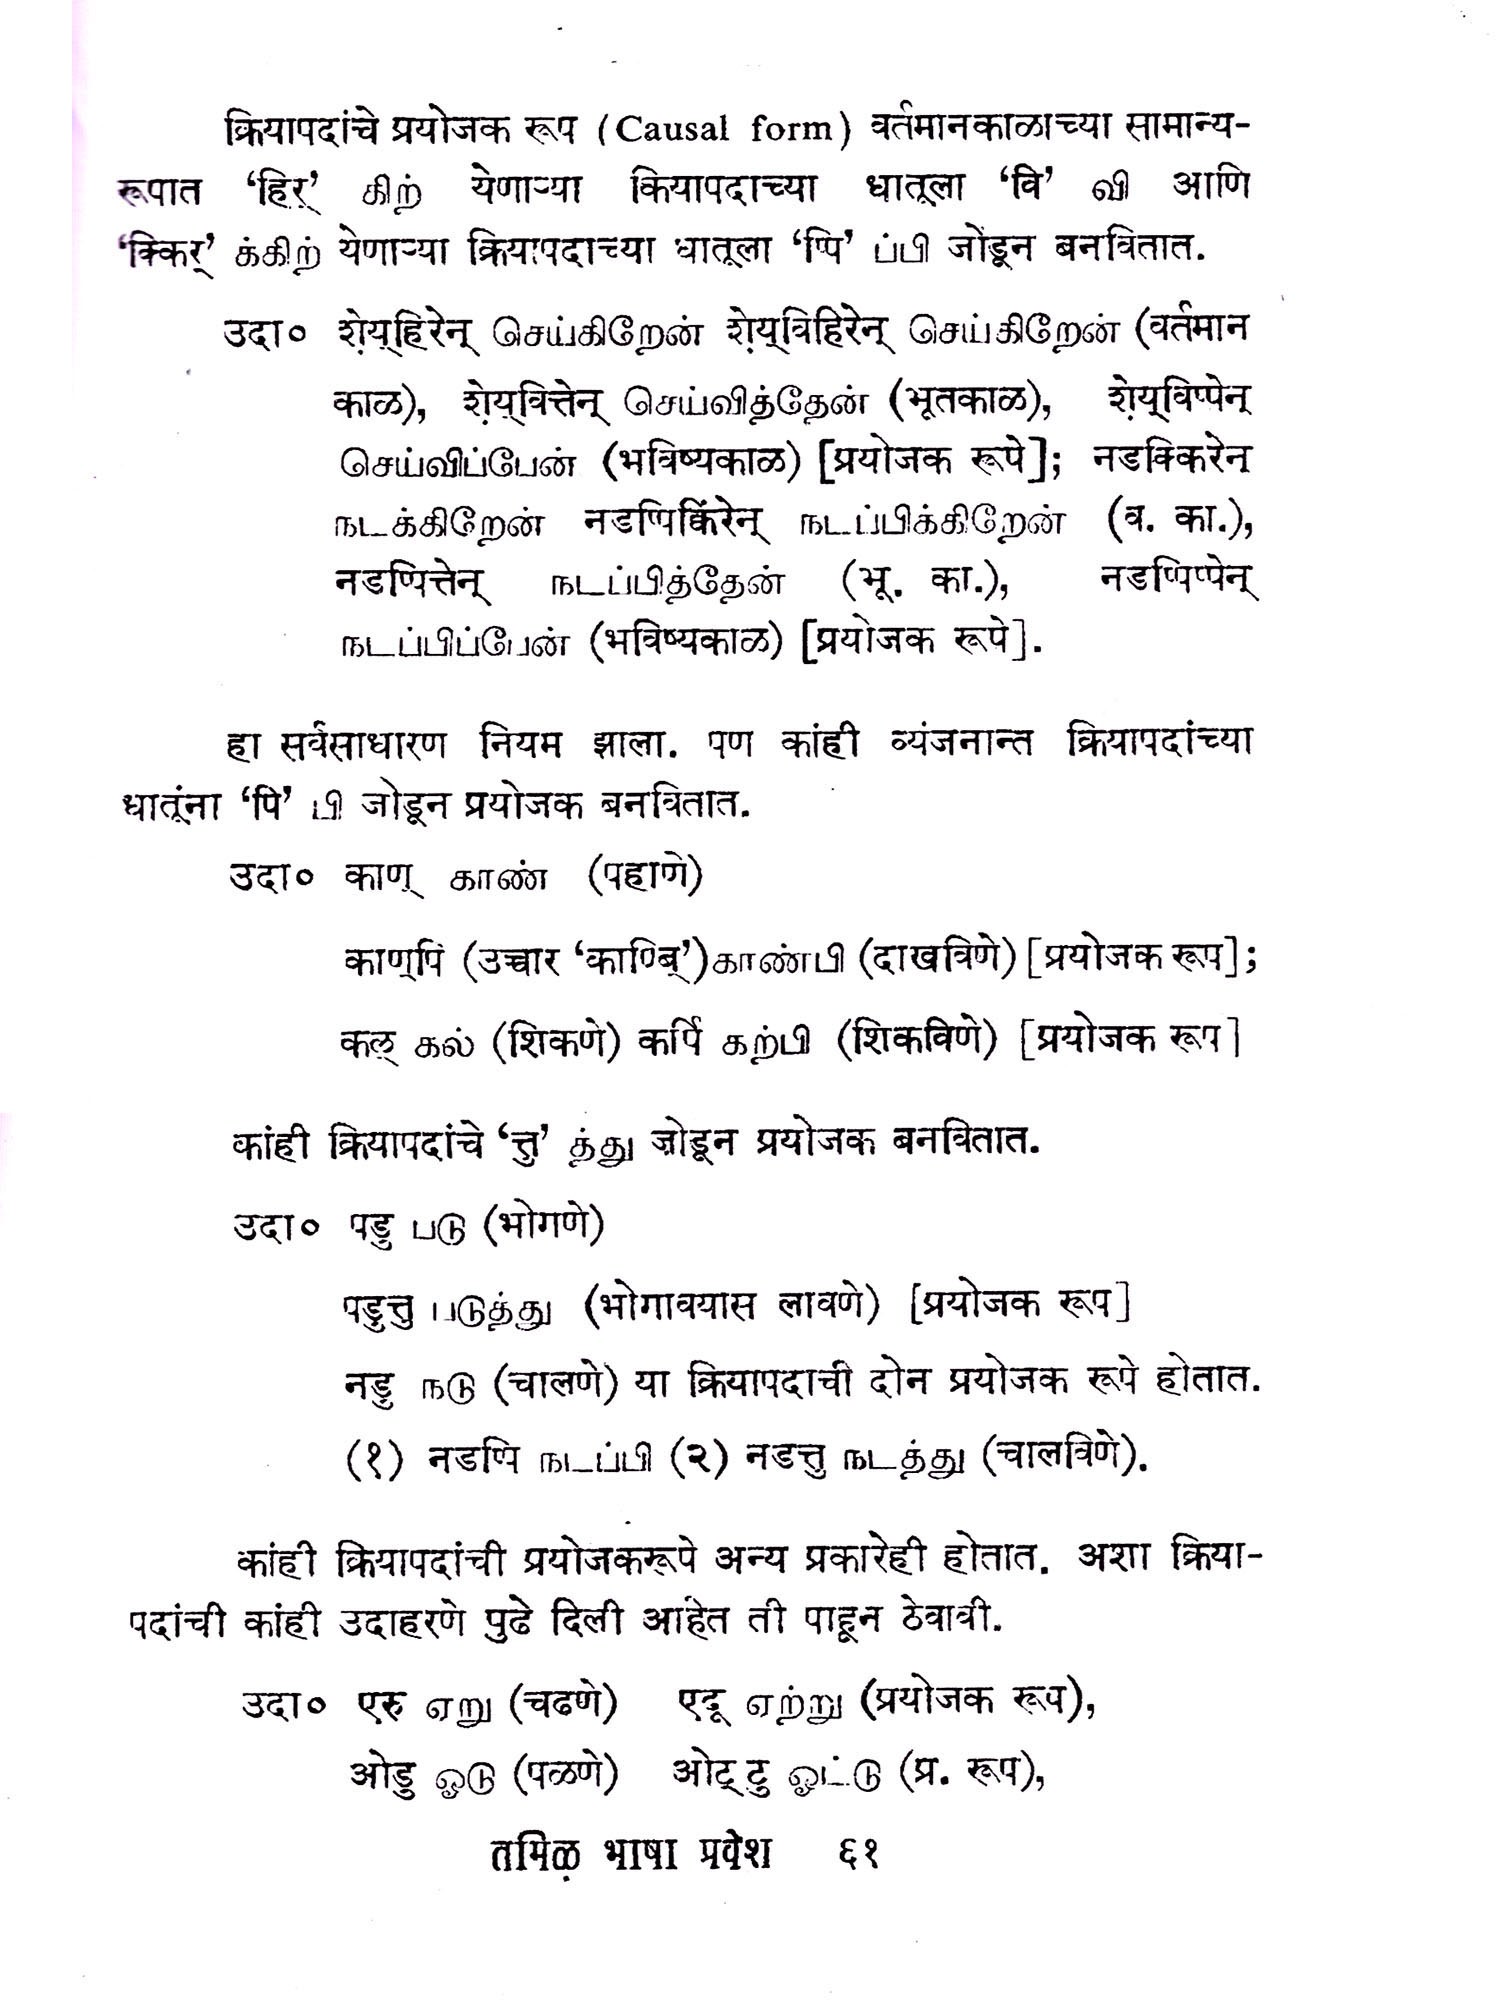 क्रियापदांचे प्रयोजक रूप (Causal form) वर्तमानकाळाच्या सामान्य-
रूपात ‘हिर्’ கிற் येणाऱ्या कियापदाच्या धातूला ‘वि’ வி आणि
‘क्किर्’ க்கிற் येणाऱ्या क्रियापदाच्या धातूला ‘प्पि’ ப்பி जोडून बनवितात.
उदा० शे़य्हिरेन् செய்கிறேன் शे़य्विहिरेन् செய்கிறேன் (वर्तमान
काळ), शे़य्वित्तेन् செய்வித்தேன் (भूतकाळ), शे़य्विप्पेन्
செய்விப்பேன் (भविष्यकाळ) [प्रयोजक रूपे]; नडक्किरेन्
நடக்கிறேன் नडप्पिक्किरेन् நடப்பிக்கிறேன் (व. का.),
नडप्पित्तेन् நடப்பித்தேன் (भू. का.), नडप्पिप्पेन्
நடப்பிப்பேன் (भविष्यकाळ) [प्रयोजक रूपे].
हा सर्वसाधारण नियम झाला. पण कांही व्यंजनान्त क्रियापदांच्या
धातूंना ‘पि’ பி जोडून प्रयोजक बनवितात.
उदा० काण् காண் (पहाणे)
काण्पि (उच्चार ‘काण्बि’) காண்பி (दाखविणे) [प्रयोजक रूप];
कल् கல் (शिकणे) कर्पि கற்பி (शिकविणे) [प्रयोजक रूप]
कांही क्रियापदांचे ‘त्तु’ த்து जोडून प्रयोजक बनवितात.
उदा० पडु படு (भोगणे)
पडुत्तु படுத்து (भोगावयास लावणे) [प्रयोजक रूप]
नडु நடு (चालणे) या क्रियापदाची दोन प्रयोजक रूपे होतात.
(१) नडप्पि நடப்பி (२) नडत्तु நடத்து (चालविणे).
कांही क्रियापदांची प्रयोजकरूपे अन्य प्रकारेही होतात. अशा क्रिया-
पदांची कांही उदाहरणे पुढे दिली आहेत ती पाहून ठेवावी.
उदा० एरु ஏறு (चढणे) एट्रू ஏற்று (प्रयोजक रूप),
ओडु ஓடு (पळणे) ओट्टु ஓட்டு (प्र. रूप),
तमिऴ भाषा प्रवेश ६१